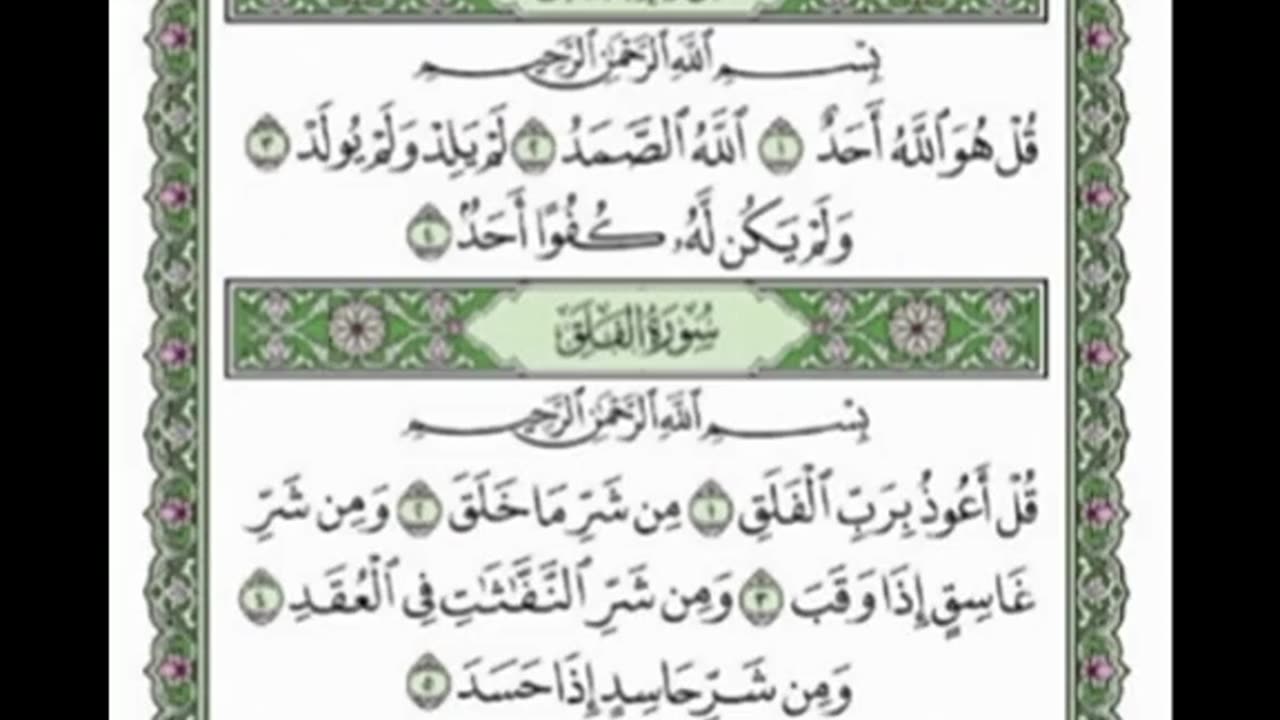 بِسْمِ ٱللَّهِ ٱلرَّحْمَٰنِ ٱلرَّحِيمِ
قُلْ هُوَ ٱللَّهُ أَحَدٌ ١ ٱللَّهُ ٱلصَّمَدُ ٢ لَمْ يَلِدْ وَلَمْ يُولَدْ ٣
وَلَمْ يَكُن لَّهُۥ كُفُوًا أَحَدٌۢ ٤
سُورَةُ الْفَلَقِ
بِسْمِ ٱللَّهِ ٱلرَّحْمَٰنِ ٱلرَّحِيمِ
قُلْ أَعُوذُ بِرَبِّ ٱلْفَلَقِ ١ مِن شَرِّ مَا خَلَقَ ٢ وَمِن شَرِّ
غَاسِقٍ إِذَا وَقَبَ ٣ وَمِن شَرِّ ٱلنَّفَّٰثَٰتِ فِى ٱلْعُقَدِ ٤
وَمِن شَرِّ حَاسِدٍ إِذَا حَسَدَ ٥